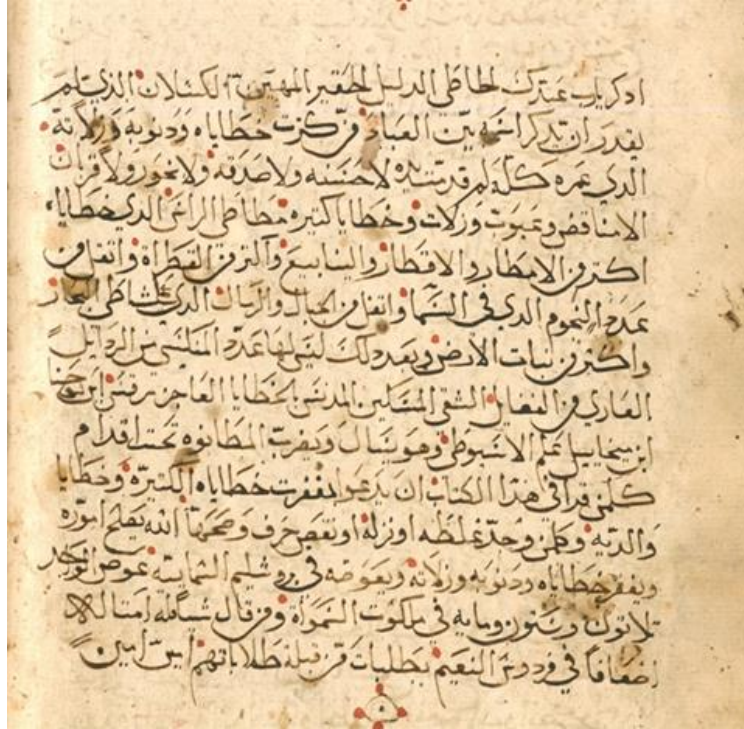 اذكر يارب عبدك الخاطى الدليل الحقير المهين الكسلان الذي لم
يقدر ان يذكر اسمه بين العباد من كترت خطاياه ودنوبه وزلاته
الدي عمره كله لم قدمت يده لا حسنه ولا صدقه ولا بخور ولا قربان
الا مناقص وعيوب وزلات وخطايا كتيره
اكتر من الامطار والاقطار والينابيع واكتر من القطراة واتقل من
عدد النجوم الدي في السما واتقل من الجبال والرمال الدي على شاطى البحار
واكتر من نبات الارض وبعد دلك ليس لها عدد المفلس من الردايل
العاري من الفضايل الشقي المسكين المدنس بالخطايا العاجز يوحنا
ابن ميخاييل علم الاسيوطي وهو يسال ويضرب المطانوه تحت اقدام
كلمن قرا في هدا الكتاب ان يدعوا بغفرت خطاياه الكتيرة وخطايا
والديه وكلمن وجد غلطه او زله او نقص حرف وصححها الله يصلح اموره
ويغفر خطاياه ودنوبه وزلاته ويعوضه في يروشليم السماييه عوض الوحد
تلاتون وستون ومايه في ملكوت السمواة ومن قال شيا فله امتاله
اضعافا في فردوس النعيم بطلبات من قبلة طلاباتهم امين امين